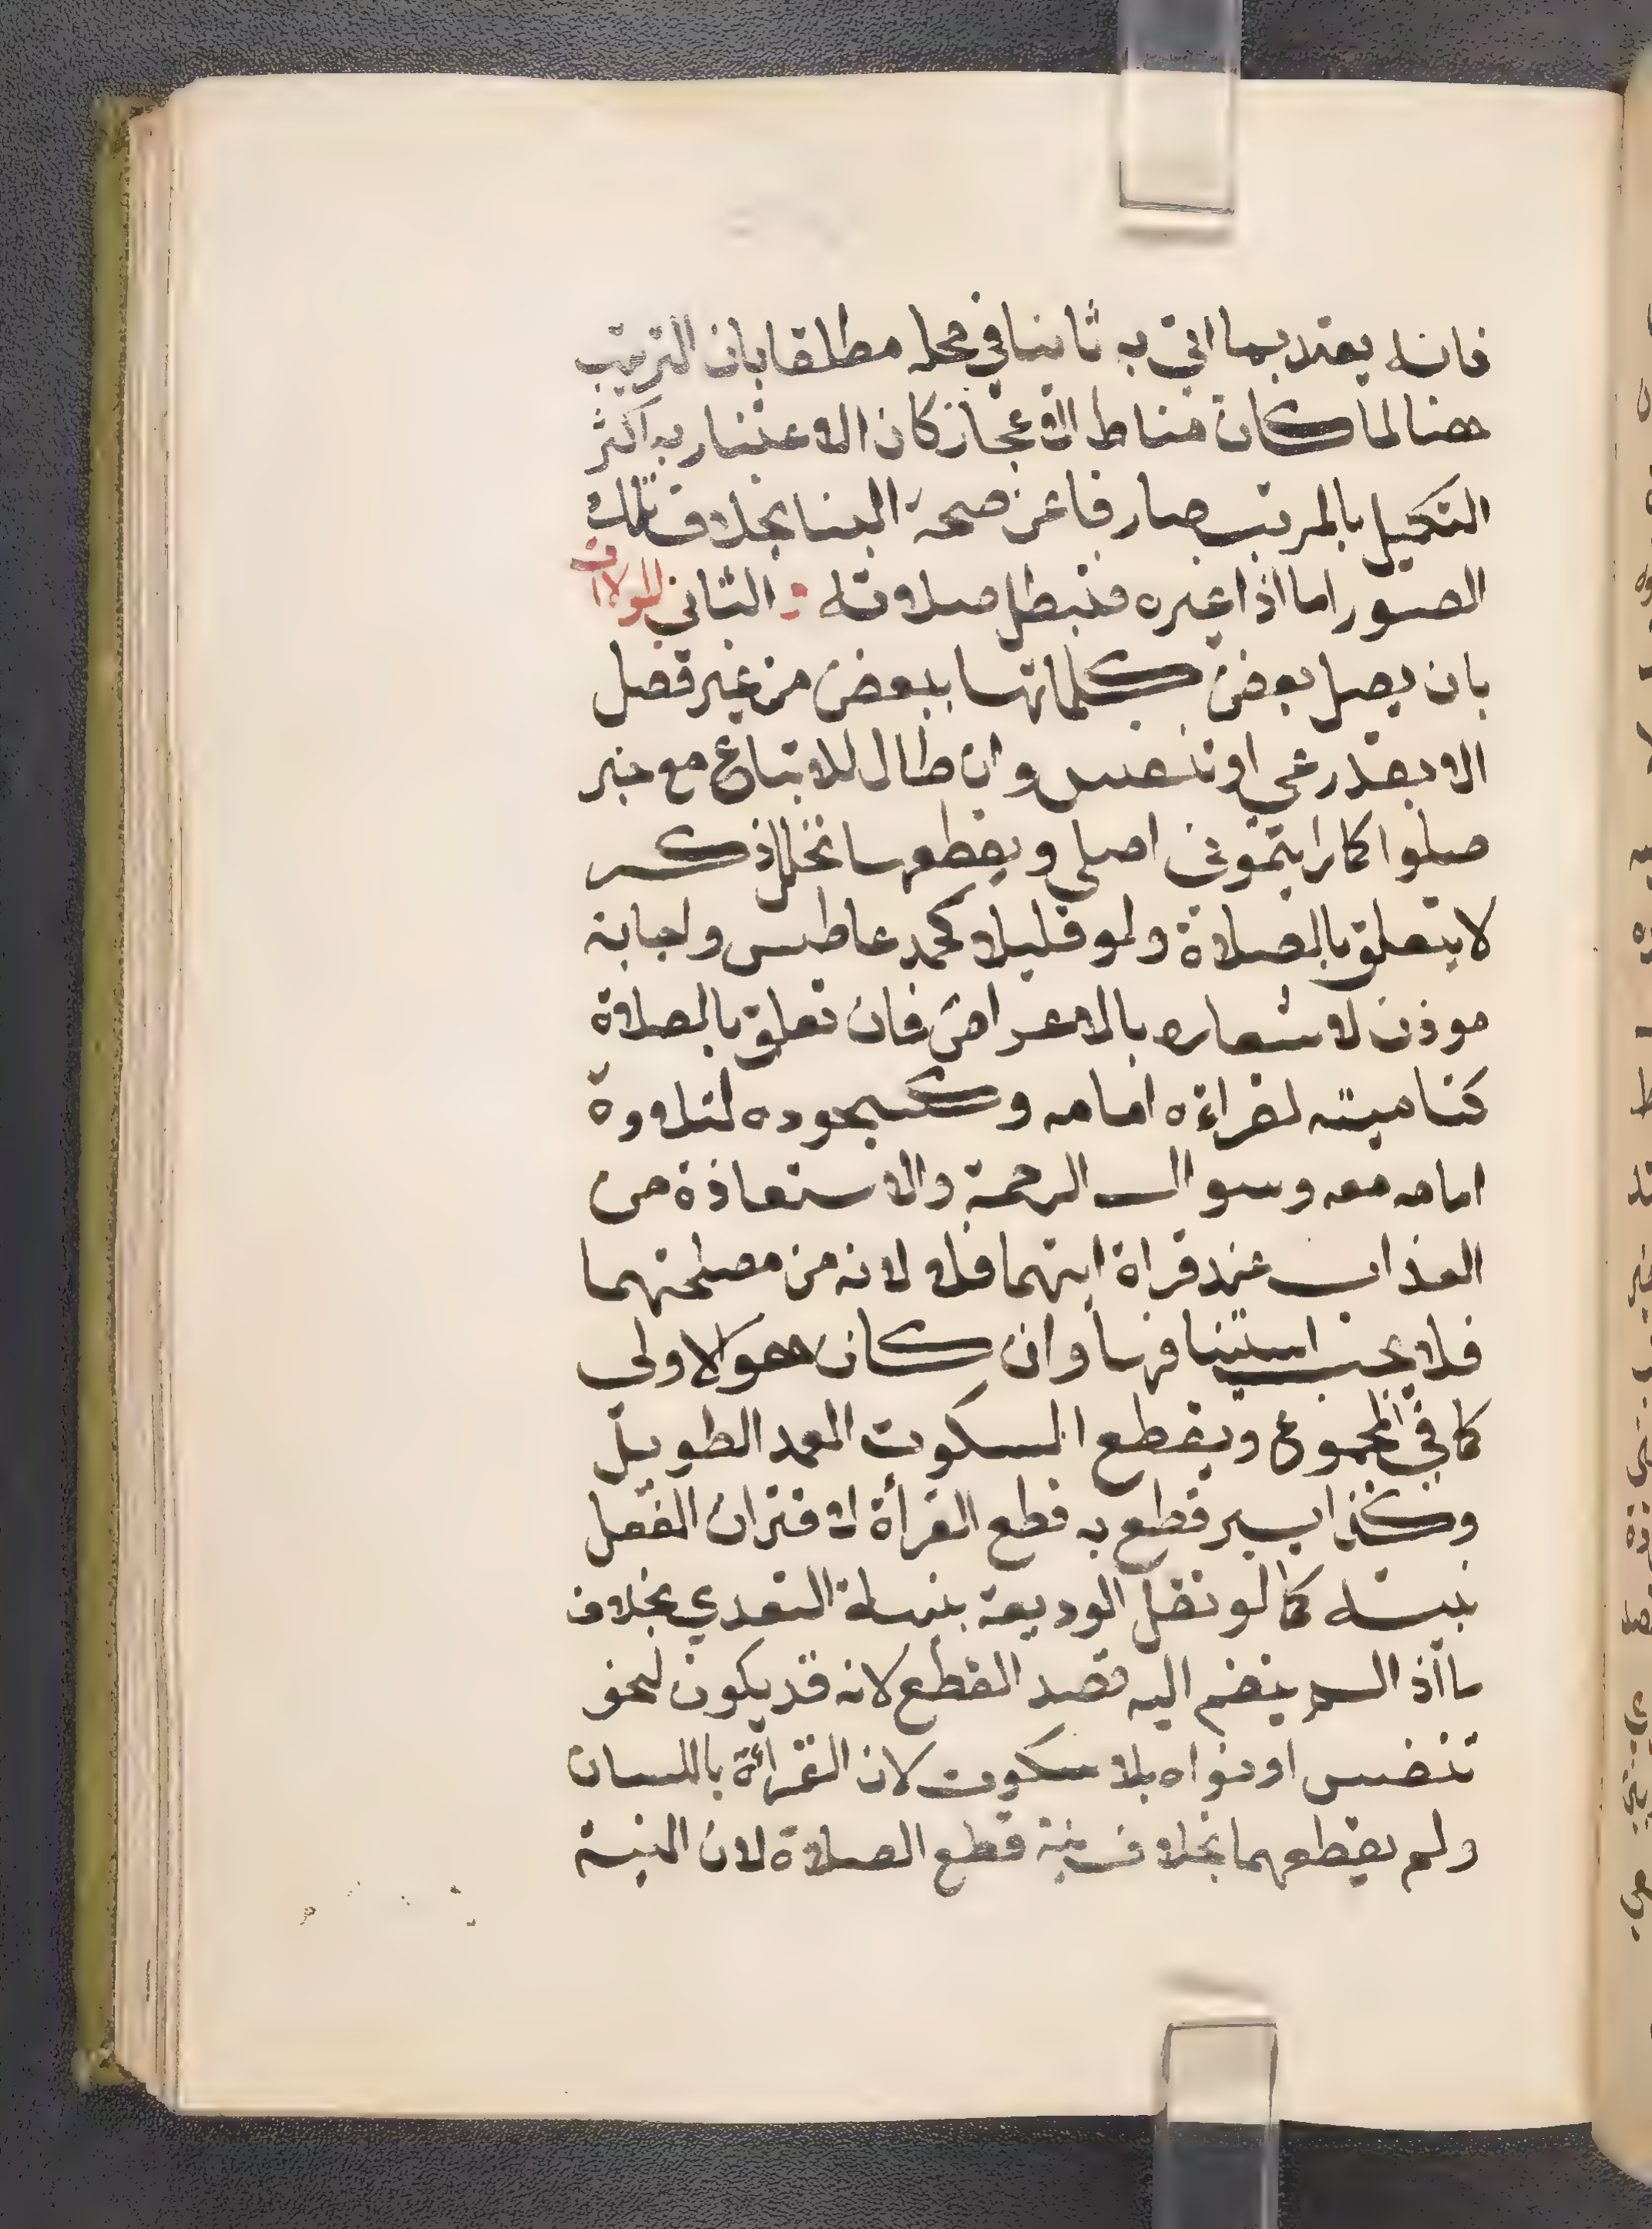 فانه يعتد بما اتى به ثانيا في محله مطلقا بان الترتيب
هنا لما كان مناط الاعجاز كان الاعتنا به اكثر
التكميل بالمرتب صارفا عن صحة البنا بخلاف تلك
الصور اما اذا غيره فتبطل صلاته و الثاني الموالات
بان يصل بعض كلماتها ببعض من غير فصل
الا بقدر عي او تنفس وان طال للاتباع مع خبر
صلوا كما رايتموني اصلي ويقطعها تخلل ذكر
لا يتعلق بالصلاة ولو قليلا كحمد عاطس واجابة
موذن لاشعاره بالاعراض فان تعلق بالصلاة
كتامينه لقراءه امامه وكسجوده لتلاوة
امامه معه وسوال الرحمة والاستعاذة من
العذاب عند قراة ايتهما فلا لانه من مصلحتهما
فلا يجب استينافها وان كان هو الاولى
كما في المجموع ويقطع السكوت العمد الطويل
وكذا يسير قطع به قطع القرأة لاقتران الفعل
بنيته كما لو نقل الوديعة بنية التعدي بخلاف
ما اذا لم ينضم اليه قصد القطع لانه قد يكون لنحو
تنفس او نواه بلا سكوت لان القرأة باللسان
ولم يقطعهما بخلاف نية قطع الصلاة لان النية